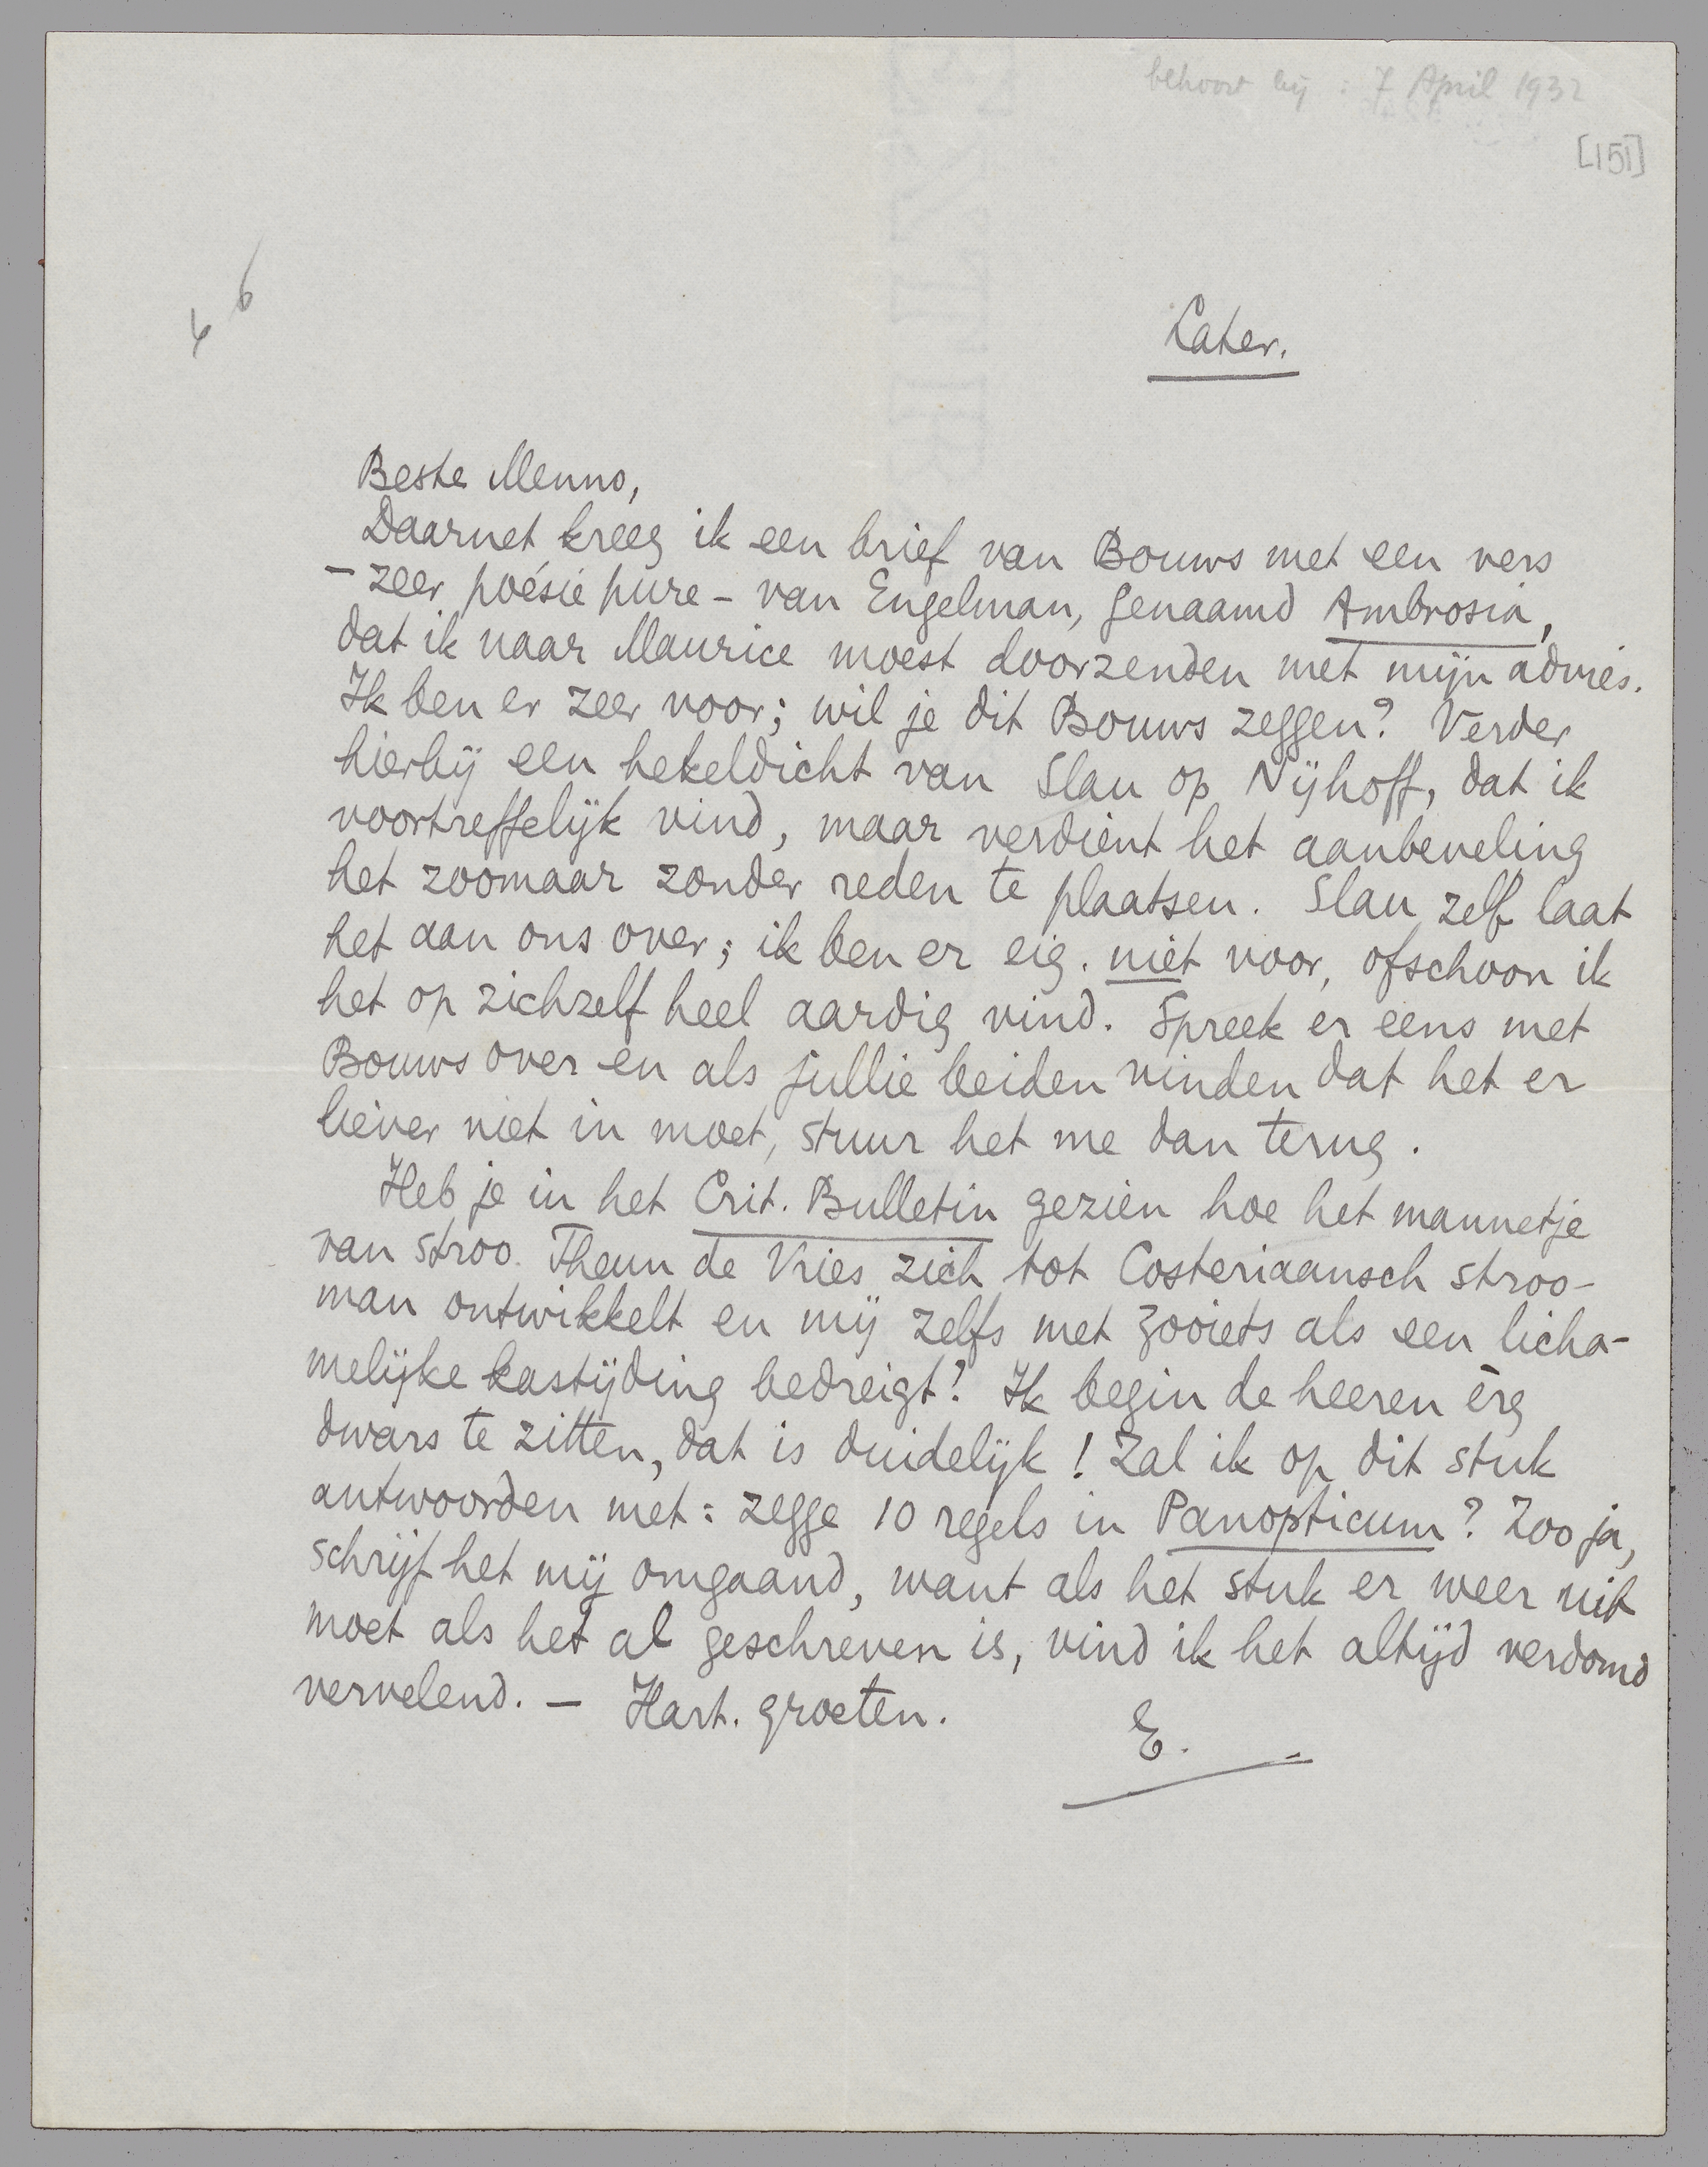 behoort bij : 7 April 1932
[151]
6
6
Later.
Beste Menno,
Daarnet kreeg ik een brief van Bouws met een vers
– zeer poésie pure – van Engelman, genaamd Ambrosia,
dat ik naar Maurice moest doorzenden met mijn advies.
Ik ben er zeer voor; wil je dit Bouws zeggen? Verder
hierbij een hekeldicht van Slau op Nijhoff, dat ik
voortreffelijk vind, maar verdient het aanbeveling
het zoomaar zonder reden te plaatsen. Slau zelf laat
het aan ons over; ik ben er eig. niet voor, ofschoon ik
het op zichzelf heel aardig vind. Spreek er eens met
Bouws over en als jullie beiden vinden dat het er
liever niet in moet, stuur het me dan terug.
Heb je in het Crit. Bulletin gezien hoe het mannetje
van stroo Theun de Vries zich tot Costeriaansch stroo-
man ontwikkelt en mij zelfs met zooiets als een licha-
melijke kastijding bedreigt? Ik begin de heeren èrg
dwars te zitten, dat is duidelijk! Zal ik op dit stuk
antwoorden met: zegge 10 regels in Panopticum? Zoo ja,
schrijf het mij omgaand, want als het stuk er weer uit
moet als het al geschreven is, vind ik het altijd verdomd
vervelend. – Hart. groeten.
E.